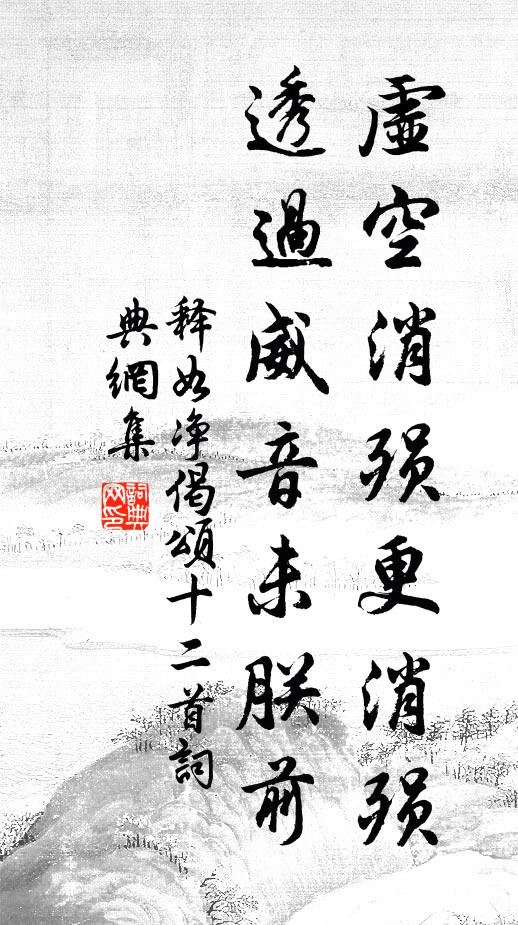 虛空消殞更消殞
透過威音未朕前
释如净偈頌十二首詞
典網集
詞典网印